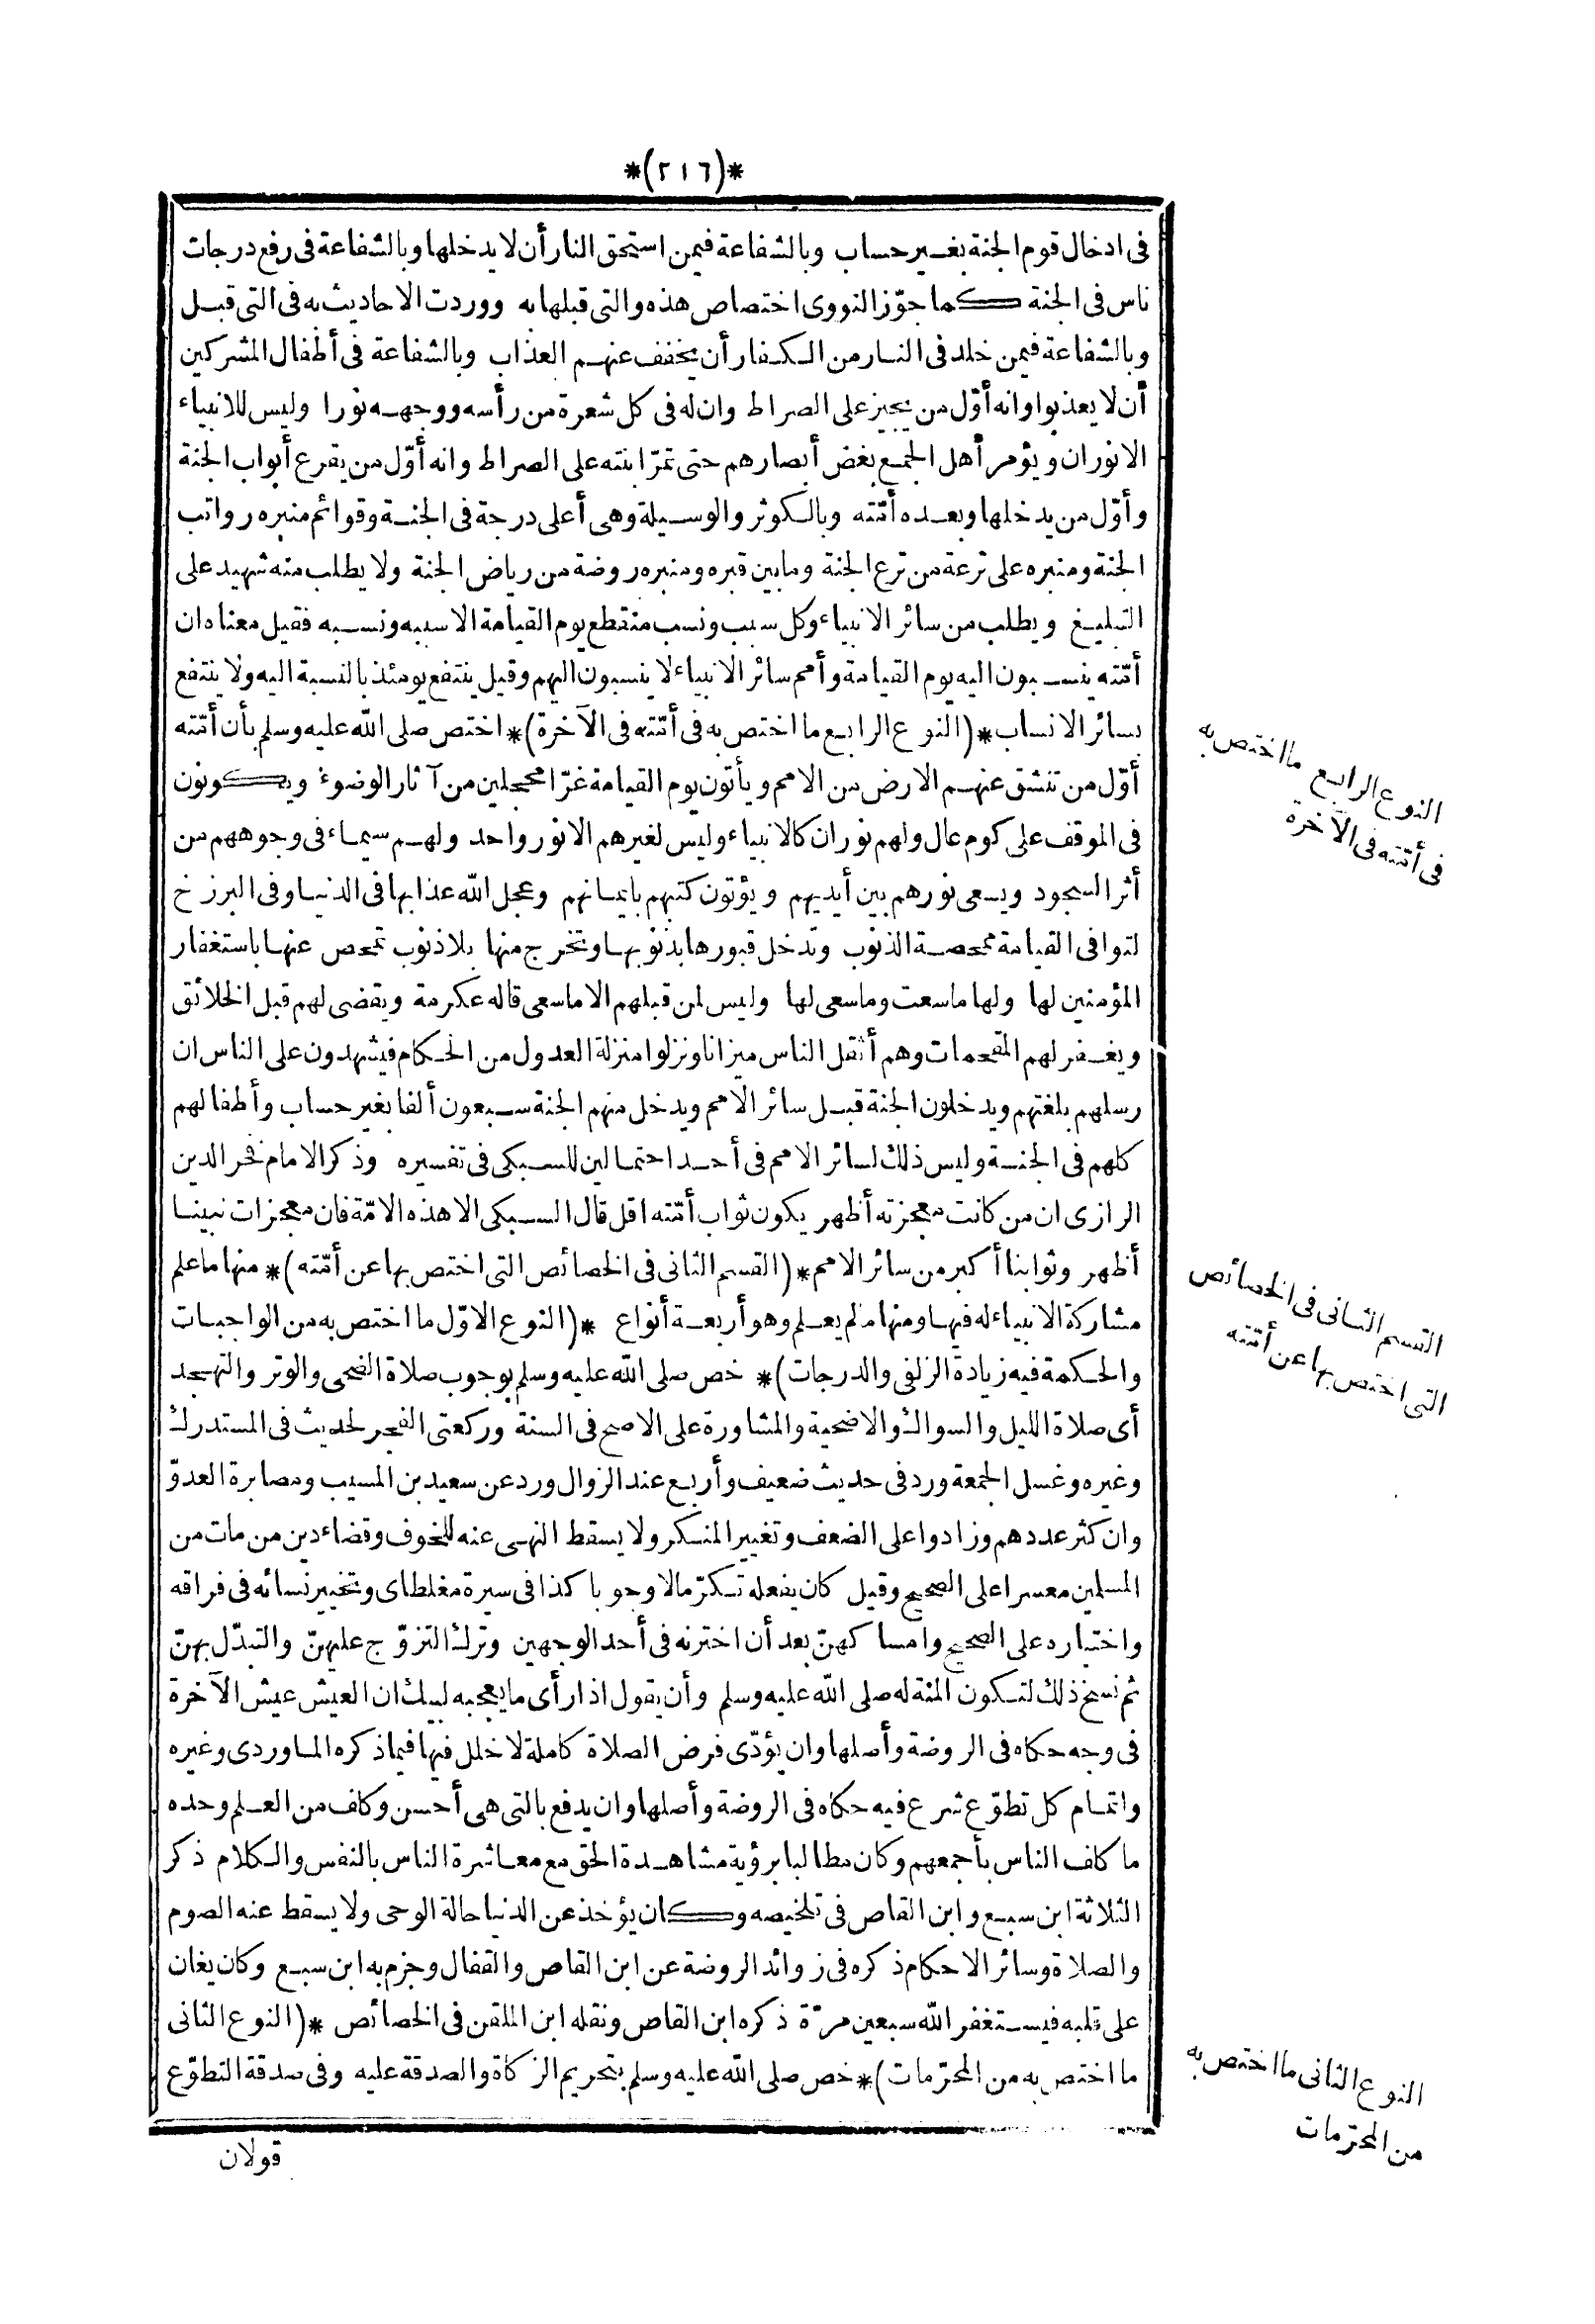 *(٢١٦)*
فى ادخال قوم الجنة بغير حساب وبالشفاعة فيمن استحق النار أن لا يدخلها وبالشفاعة فى رفع درجات
ناس فى الجنة كما جوّز النووى اختصاص هذه والتى قبلها به ووردت الاحاديث به فى التى قبل
وبالشفاعة فيمن خلد فى النار من الكفار أن يخفف عنهم العذاب وبالشفاعة فى أطفال المشركين
أن لا يعذبوا وانه أوّل من يجيز على الصراط وان له فى كل شعرة من رأسه ووجهه نورا وليس للانبياء
الانوران ويؤمر أهل الجمع بغض أبصارهم حتى تمرّ ابنته على الصراط وانه أوّل من يقرع أبواب الجنة
وأوّل من يدخلها وبعده أمّته وبالكوثر والوسيلة وهى أعلى درجة فى الجنة وقوائم منبره رواتب
الجنة ومنبره على ترعة من ترع الجنة وما بين قبره ومنبره روضة من رياض الجنة ولا يطلب منه شهيد على
التبليغ ويطلب من سائر الانبياء وكل سبب ونسب منقطع يوم القيامة الا سببه ونسبه فقيل معناه ان
أمّته ينسبون اليه يوم القيامة وأمم سائر الانبياء لا ينسبون اليهم وقيل ينتفع يومئذ بالنسبة اليه ولا ينتفع
بسائر الانساب *(النوع الرابع ما اختص به فى أمّته فى الآخرة)* اختص صلى الله عليه وسلم بأن أمّته
أوّل من تنشق عنهم الارض من الامم ويأتون يوم القيامة غرّا محجلين من آثار الوضوء ويكونون
فى الموقف على كوم عال ولهم نوران كالانبياء وليس لغيرهم الا نور واحد ولهم سيماء فى وجوههم من
أثر السجود ويسعى نورهم بين أيديهم ويؤتون كتبهم بايمانهم وعجل الله عذابها فى الدنيا وفى البرزخ
لتوافى القيامة ممحصة الذنوب وتدخل قبورها بذنوبها وتخرج منها بلا ذنوب تمحص عنها باستغفار
المؤمنين لها ولها ما سعت وما سعى لها وليس لمن قبلهم الا ما سعى قاله عكرمة ويقضى لهم قبل الخلائق
ويغفر لهم المقحمات وهم أثقل الناس ميزانا ونزلوا منزلة العدول من الحكام فيشهدون على الناس ان
رسلهم بلغتهم ويدخلون الجنة قبل سائر الامم ويدخل منهم الجنة سبعون ألفا بغير حساب وأطفالهم
كلهم فى الجنة وليس ذلك لسائر الامم فى أحد احتمالين للسبكى فى تفسيره وذكر الامام فخر الدين
الرازى ان من كانت معجزته أظهر يكون ثواب أمّته اقل قال السبكى الا هذه الامّة فان معجزات نبينا
أظهر وثوابنا أكبر من سائر الامم *(القسم الثانى فى الخصائص التى اختص بها عن أمّته)* منها ما علم
مشاركة الانبياء له فيها ومنها ما لم يعلم وهو أربعة أنواع *(النوع الاوّل ما اختص به من الواجبات
والحكمة فيه زيادة الزلفى والدرجات)* خص صلى الله عليه وسلم بوجوب صلاة الضحى والوتر والتهجد
أى صلاة الليل والسواك والاضحية والمشاورة على الاصح فى السنة وركعتى الفجر لحديث فى المستدرك
وغيره وغسل الجمعة ورد فى حديث ضعيف وأربع عند الزوال ورد عن سعيد بن المسيب ومصابرة العدوّ
وان كثر عددهم وزادوا على الضعف وتغيير المنكر ولا يسقط النهى عنه للخوف وقضاء دين من مات من
المسلمين معسرا على الصحيح وقيل كان يفعله تكرّما لا وجوبا كذا فى سيرة مغلطاى وتخيير نسائه فى فراقه
واختياره على الصحيح وامساكهنّ بعد أن اخترنه فى أحد الوجهين وترك التزوّج عليهنّ والتبدّل بهنّ
ثم نسخ ذلك لتكون المنة له صلى الله عليه وسلم وأن يقول اذا رأى ما يعجبه لبيك ان العيش عيش الآخرة
فى وجه حكاه فى الروضة وأصلها وان يؤدّى فرض الصلاة كاملة لا خلل فيها فيما ذكره الماوردى وغيره
واتمام كل تطوّع شرع فيه حكاه فى الروضة وأصلها وان يدفع بالتى هى أحسن وكلف من العلم وحده
ما كلف الناس بأجمعهم وكان مطالبا برؤية مشاهدة الحق مع معاشرة الناس بالنفس والكلام ذكر
الثلاثة ابن سبع وابن القاص فى تلخيصه وكان يؤخذ عن الدنيا حالة الوحى ولا يسقط عنه الصوم
والصلاة وسائر الاحكام ذكره فى زوائد الروضة عن ابن القاص والقفال وجزم به ابن سبع وكان يغان
على قلبه فيستغفر الله سبعين مرّة ذكره ابن القاص ونقله ابن الملقن فى الخصائص *(النوع الثانى
ما اختص به من المحرّمات)* خص صلى الله عليه وسلم بتحريم الزكاة والصدقة عليه وفى صدقة التطوّع
قولان
النوع الرابع ما اختص به
فى أمّته فى الآخرة
القسم الثانى فى الخصائص
التى اختص بها عن أمّته
النوع الثانى ما اختص به
من المحرّمات